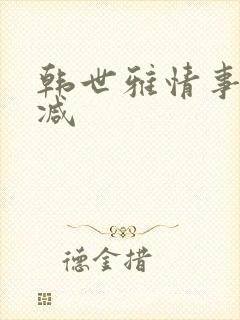 韩世雅情事
减
德金措